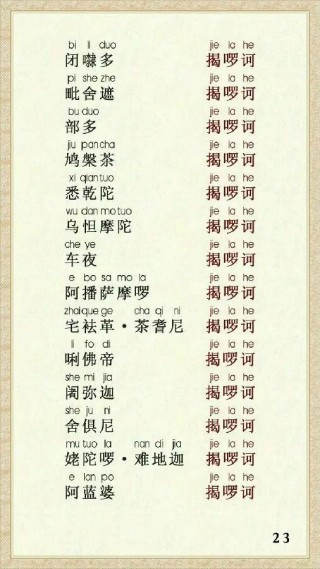 bi li duo jie la he
闭𡃇多 揭啰诃
pi she zhe jie la he
毗舍遮 揭啰诃
bu duo jie la he
部多 揭啰诃
jiu pan cha jie la he
鸠槃茶 揭啰诃
xi qian tuo jie la he
悉乾陀 揭啰诃
wu dan mo tuo jie la he
乌怛摩陀 揭啰诃
che ye jie la he
车夜 揭啰诃
e bo sa mo la jie la he
阿播萨摩啰 揭啰诃
zhai que ge cha qi ni jie la he
宅袪革・茶耆尼 揭啰诃
li fo di jie la he
唎佛帝 揭啰诃
she mi jia jie la he
阇弥迦 揭啰诃
she ju ni jie la he
舍俱尼 揭啰诃
mu tuo la nan di jia jie la he
姥陀啰・难地迦 揭啰诃
e lan po jie la he
阿蓝婆 揭啰诃
23